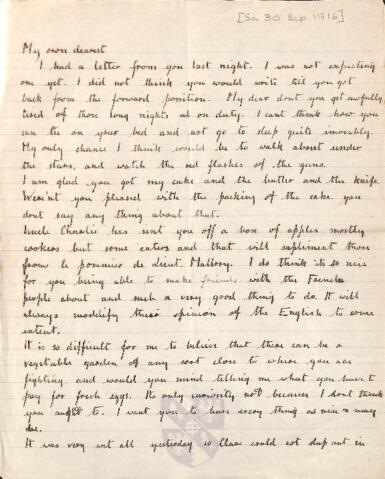 [Sa 30 Sep 1916]
My own dearest
I had a letter from you last night. I was not expecting
one yet. I did not think you would write till you got
back from the forward position. My dear dont you get awfully
tired of those long nights on duty. I cant think how you
can lie on your bed and not go to sleep quite inevitably.
My only chance I think would be to walk about under
the stars, and watch the red flashes of the guns.
I am glad you got my cake and the butter and the knife.
Weren't you pleased with the packing of the cake. you
dont say any thing about that.
Uncle Charlie has sent you off a box of apples mostly
cookers but some eaters and that will supliment them
from le pommier de Lieut. Mallory. I do think its so nice
for you being able to make friends with the French
people about and such a very good thing to do. It will
always moddify their opinion of the English to some
extent.
It is so difficult for me to believe that there can be a
vegetable garden of any sort close to where you are
fighting. and would you mind telling me what you have to
pay for fresh eggs. Its only curiosity not because I dont think
you ought to. I want you to have every thing as nice as may
be.
It was very wet all yesterday so Clare could not sleep out in